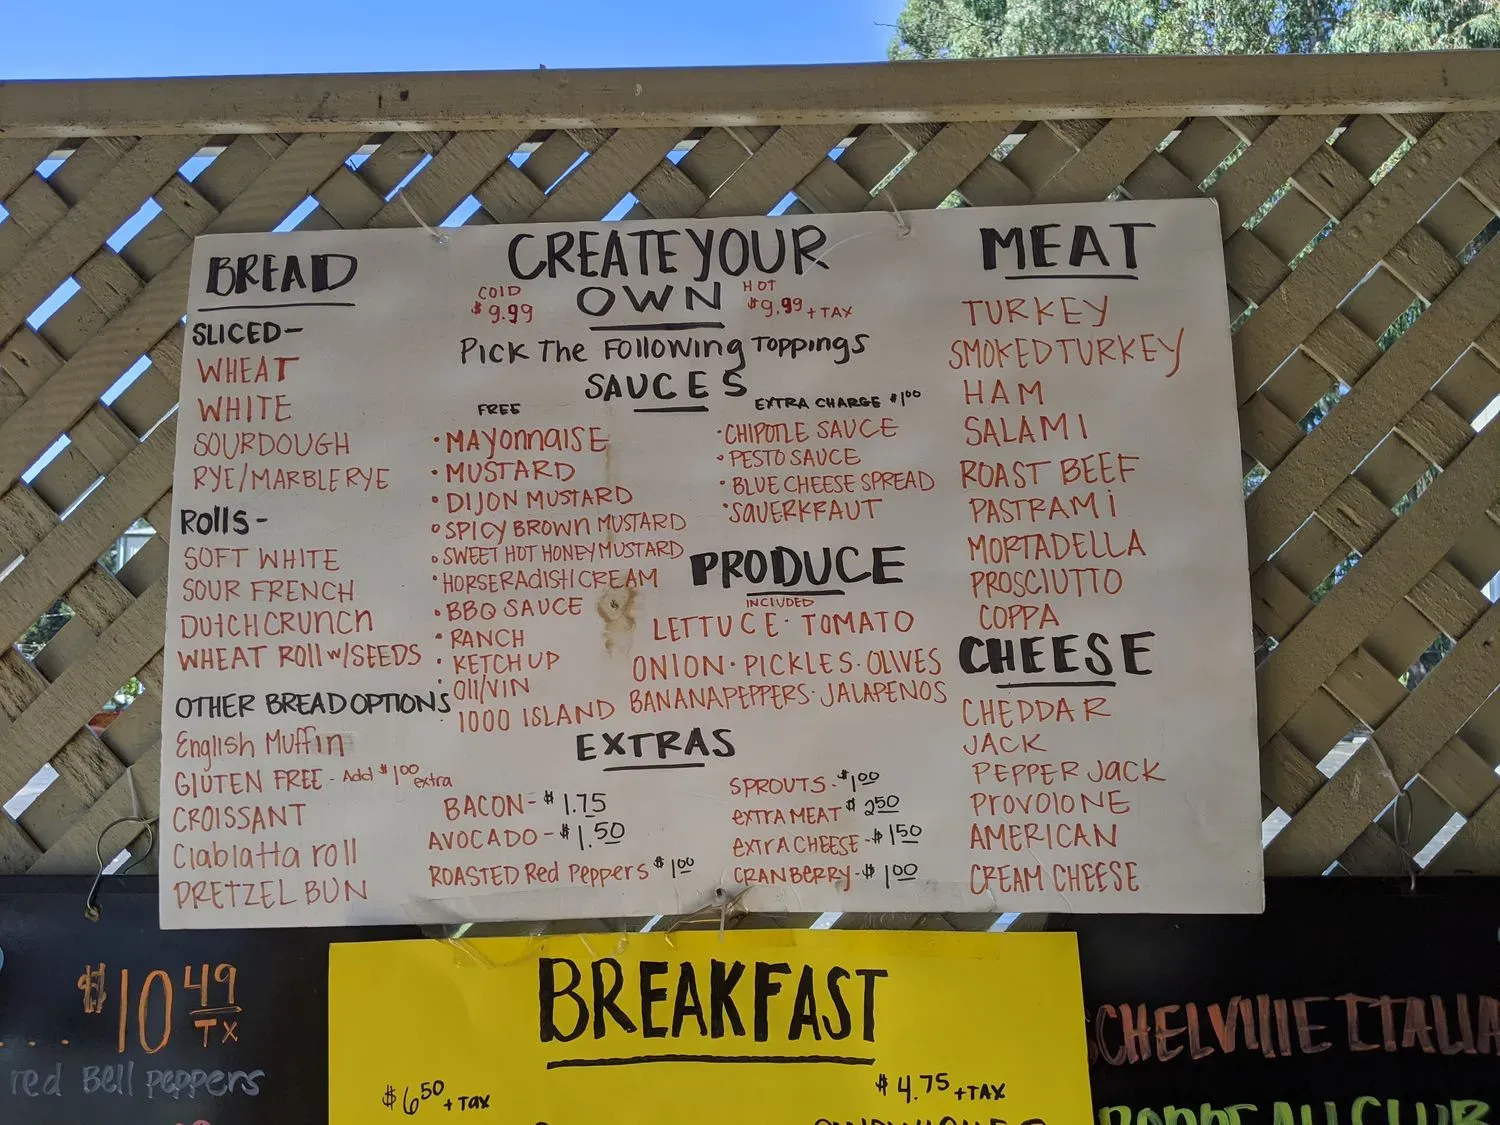 BREAD
SLICED-
WHEAT
WHITE
SOURDOUGH
RYE/MARBLE RYE
ROllS-
SOFT WHITE
SOUR FRENCH
DUTCH CRUNCH
WHEAT ROll w/SEEDS
OTHER BREAD OPTIONS
English Muffin
GLUTEN FREE - Add $1.00 extra
CROISSANT
Ciabiatta roll
PRETZEL BUN
CREATE YOUR
OWN
COLD
$9.99
HOT
$9.99 + TAX
Pick The Following Toppings
SAUCES
FREE
• MAYonnaise
• MUSTARD
• DIJON MUSTARD
• SPICY BROWN MUSTARD
• SWEET HOT HONEY MUSTARD
• HORSERADISH CREAM
• BBQ SAUCE
• RANCH
• KETCHUP
• Oil/VIN
• 1000 ISLAND
EXTRA CHARGE $1.00
• CHIPOTLE SAUCE
• PESTO SAUCE
• BLUE CHEESE SPREAD
• SAUERKRAUT
PRODUCE
INCLUDED
LETTUCE • TOMATO
ONION • PICKLES • OLIVES
BANANA PEPPERS • JALAPENOS
EXTRAS
BACON - $1.75
AVOCADO - $1.50
ROASTED Red Peppers $1.00
SPROUTS - $1.00
EXTRA MEAT $2.50
EXTRA CHEESE - $1.50
CRANBERRY - $1.00
MEAT
TURKEY
SMOKED TURKEY
HAM
SALAMi
ROAST BEEF
PASTRAMi
MORTADELLA
PROSCIUTTO
COPPA
CHEESE
CHEDDAR
JACK
PEPPER JACK
PROVOLONE
AMERICAN
CREAM CHEESE
$10.49
TX
red Bell peppers
BREAKFAST
$6.50 + TAX
$4.75 + TAX